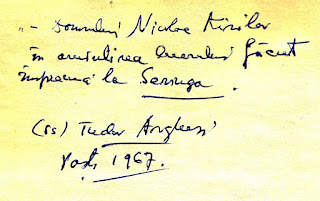 - Domnului Nicolae Kirilov
în amintirea lucrului făcut
împreună la Seringa.
(ss) Tudor Arghezi
1967.